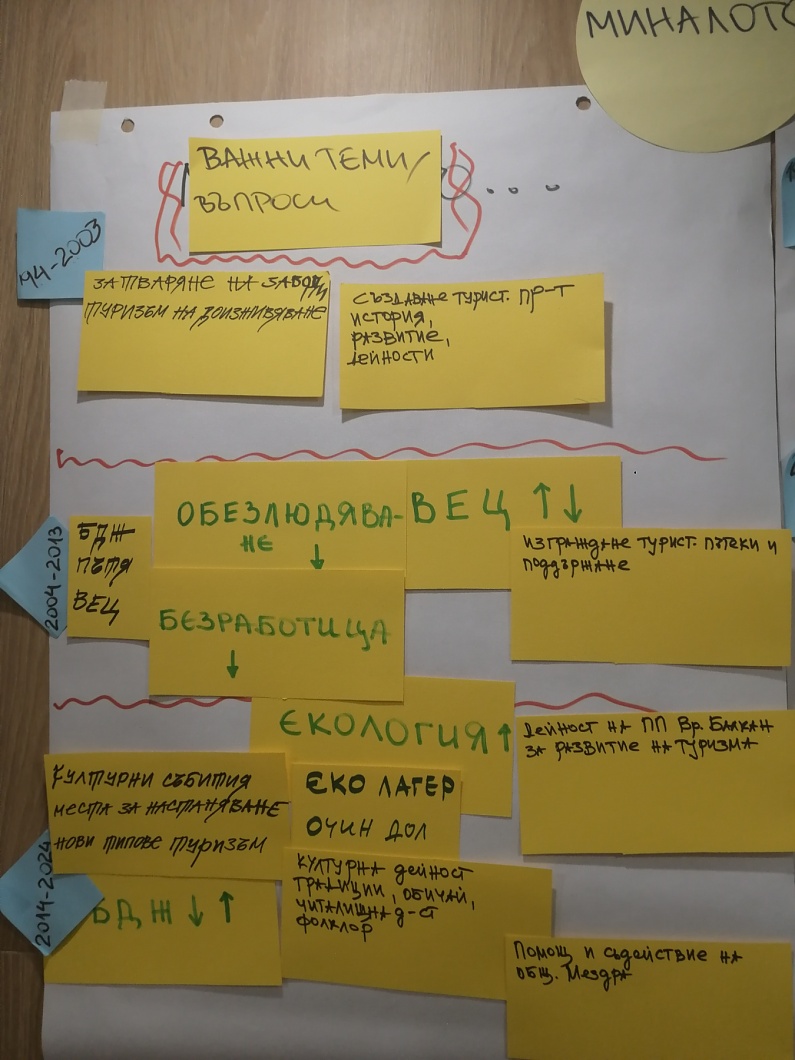 МИНАЛОТО
ВАЖНИ ТЕМИ/
ВЪПРОСИ
94-2003
ЗАТВАРЯНЕ НА ЗАВОДИ
ТУРИЗЪМ НА ДОИЗЖИВЯВАНЕ
СЪЗДАВАНЕ ТУРИСТ. ПР-Т
ИСТОРИЯ,
РАЗВИТИЕ,
ДЕЙНОСТИ
2004-2013
БДЖ
ПЪТЯ
ВЕЦ
ОБЕЗЛЮДЯВА-
НЕ ↓
ВЕЦ ↑↓
БЕЗРАБОТИЦА
↓
ИЗГРАЖДАНЕ ТУРИСТ. ПЪТЕКИ И
ПОДДЪРЖАНЕ
2014-2024
ЕКОЛОГИЯ ↑
ДЕЙНОСТ НА ПП Вр. БАЛКАН
ЗА РАЗВИТИЕ НА ТУРИЗМА
КУЛТУРНИ СЪБИТИЯ
МЕСТА ЗА НАСТАНЯВАНЕ
НОВИ ТИПОВЕ ТУРИЗЪМ
ЕКО ЛАГЕР
ОЧИН ДОЛ
БДЖ ↓ ↑
КУЛТУРНА ДЕЙНОСТ
ТРАДИЦИИ, ОБИЧАЙ,
ЧИТАЛИЩНА Д-СТ
ФОЛКЛОР
ПОМОЩ И СЪДЕЙСТВИЕ НА
ОБЩ. МЕЗДРА